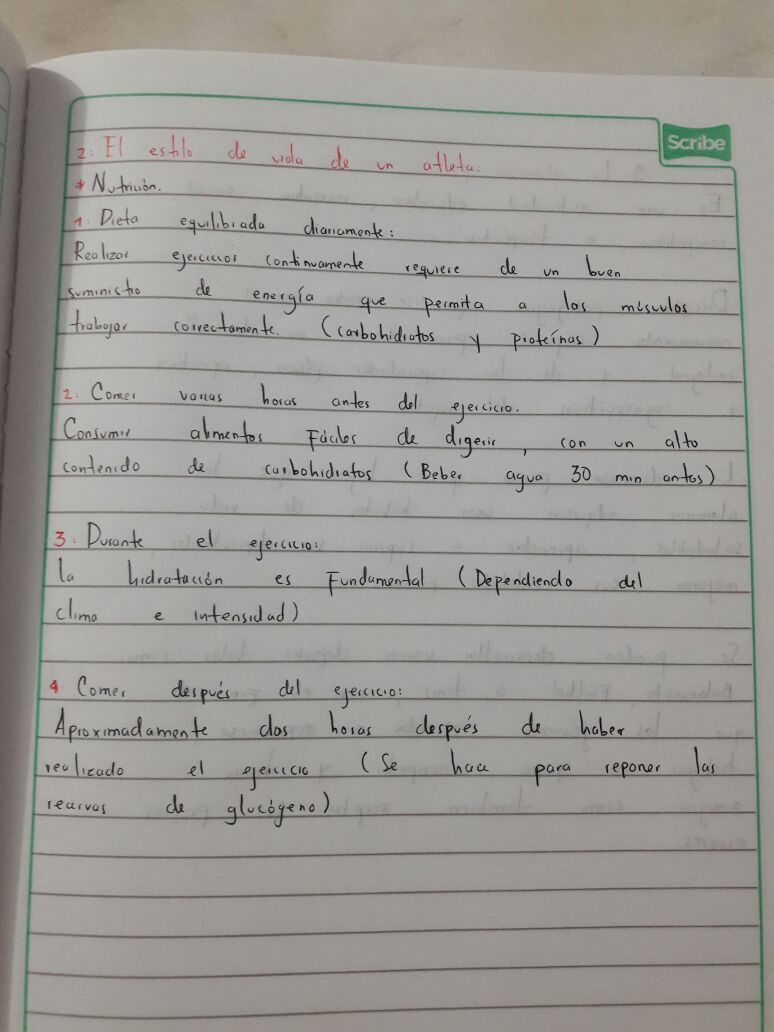 Scribe
2. El estilo de vida de un atleta:
* Nutrición.
1. Dieta equilibrada diariamente:
Realizar ejercicios continuamente requiere de un buen
suministro de energía que permita a los músculos
trabajar correctamente. (carbohidratos y proteínas)
2. Comer varias horas antes del ejercicio.
Consumir alimentos Fáciles de digerir, con un alto
contenido de carbohidratos (Beber agua 30 min antes)
3. Durante el ejercicio:
la hidratación es Fundamental (Dependiendo del
clima e intensidad)
4 Comer después del ejercicio:
Aproximadamente dos horas después de haber
realizado el ejercicio (Se hace para reponer las
reservas de glucógeno)